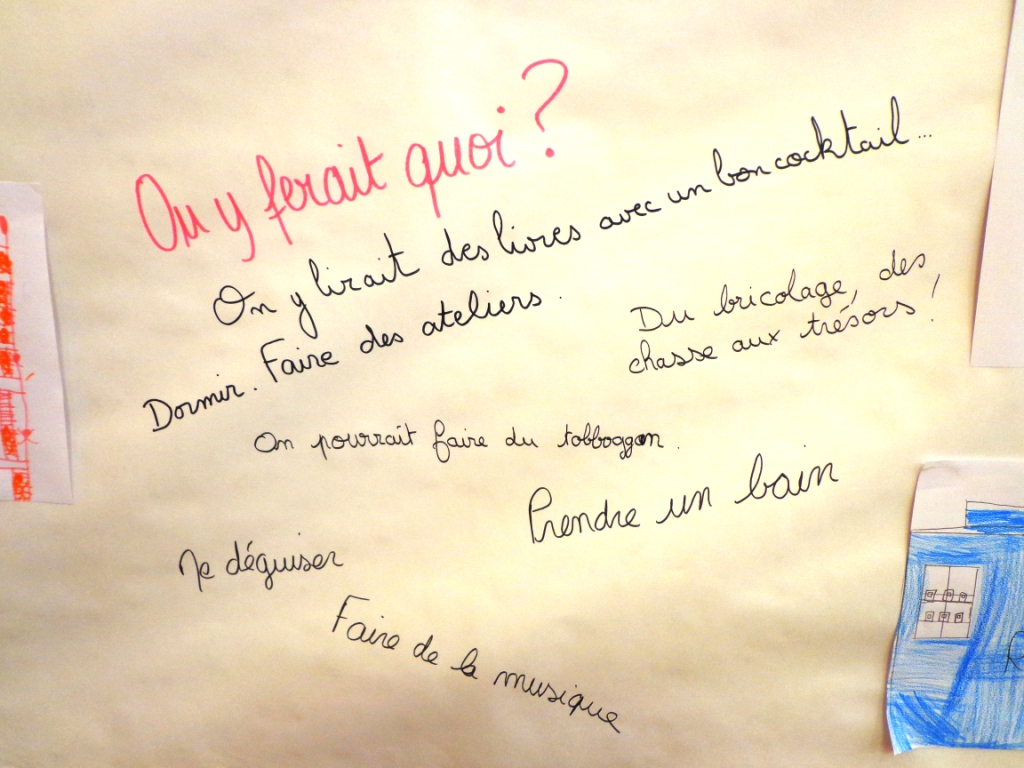 On y ferait quoi ?
On y lirait des livres avec un bon cocktail...
Dormir. Faire des ateliers.
Du bricolage, des
chasse aux trésors !
On pourrait faire du tobboggon.
Prendre un bain
Se déguiser
Faire de la musique